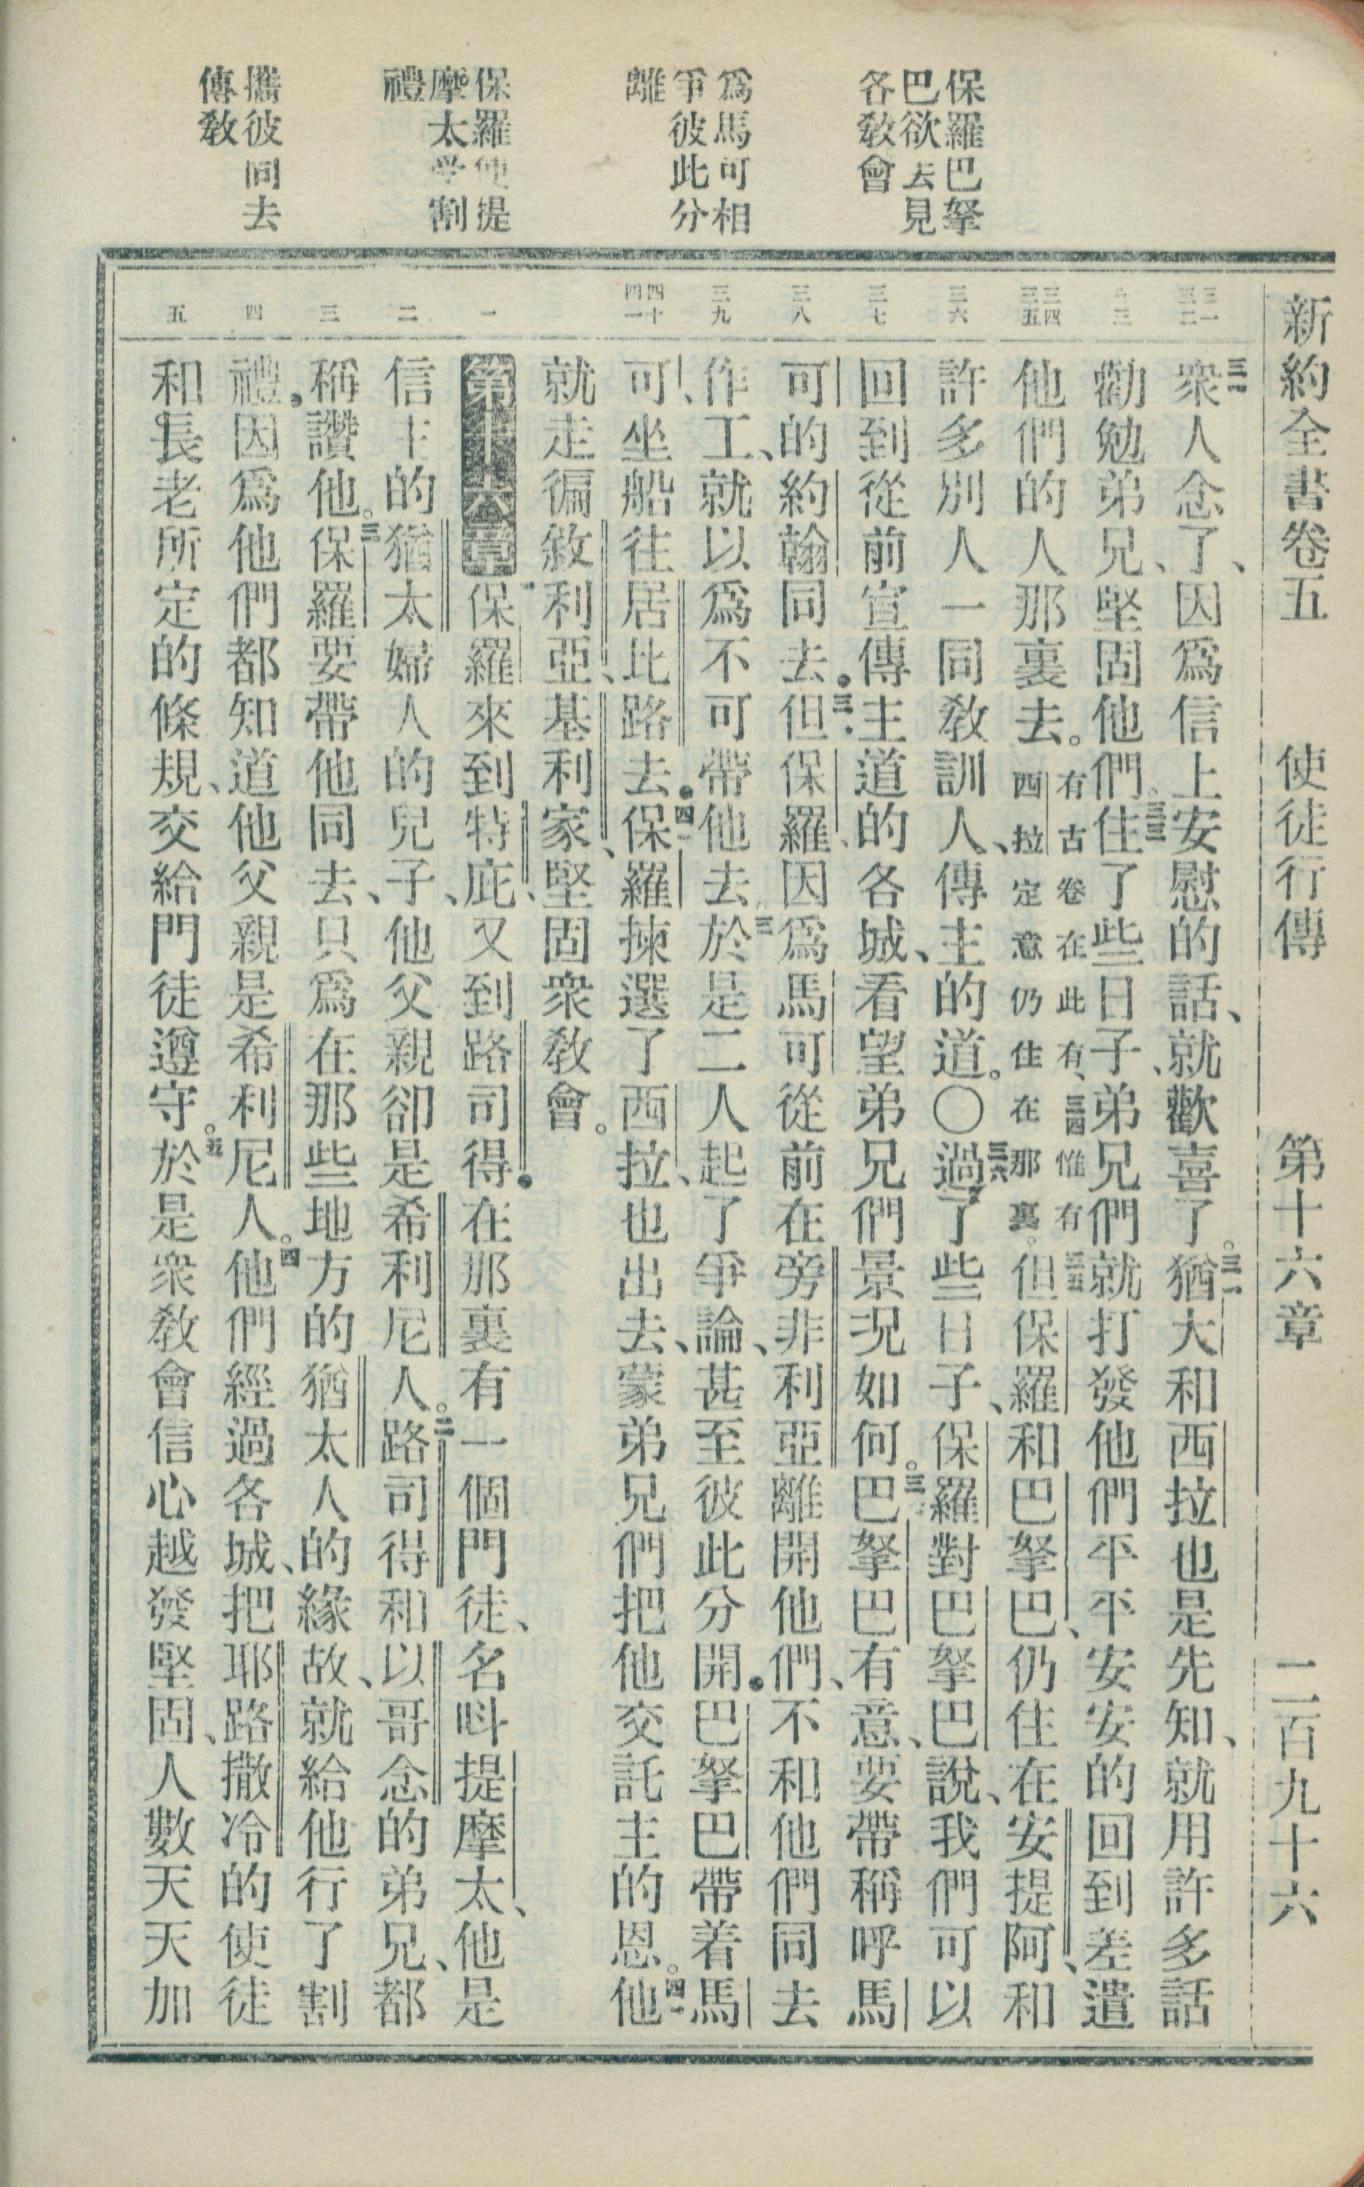 新約全書卷五　使徒行傳　第十六章　二百九十六
保羅巴拏
巴欲去見
各敎會
爲馬可相
爭彼此分
離
保羅使提
摩太受割
禮
攜彼同去
傳敎
三一 三二
三三
三四 三五
三六
三七
三八
三九
四十 四一
一
二
三
四
五
三一衆人念了、因爲信上安慰的話、就歡喜了。三二猶大和西拉也是先知、就用許多話
勸勉弟兄、堅固他們。三三住了些日子、弟兄們就打發他們平平安安的回到差遣
他們的人那裏去。有古卷在此有、三四惟有西拉定意仍住在那裏。三五但保羅和巴拏巴、仍住在安提阿、和
許多別人一同敎訓人、傳主的道。〇三六過了些日子、保羅對巴拏巴說、我們可以
回到從前宣傳主道的各城、看望弟兄們景況如何。三七巴拏巴有意、要帶稱呼馬
可的約翰同去。三八但保羅因爲馬可從前在旁非利亞離開他們、不和他們同去
作工、就以爲不可帶他去。三九於是二人起了爭論、甚至彼此分開。巴拏巴帶着馬
可、坐船往居比路去。四十保羅揀選了西拉、也出去、蒙弟兄們把他交託主的恩。四一他
就走徧敘利亞、基利家、堅固衆敎會。
第十六章　保羅來到特庇、又到路司得。在那裏有一個門徒、名呌提摩太、他是
信主的猶太婦人的兒子、他父親卻是希利尼人。二路司得和以哥念的弟兄、都
稱讚他。三保羅要帶他同去、只爲在那些地方的猶太人的緣故、就給他行了割
禮。因爲他們都知道他父親是希利尼人。四他們經過各城、把耶路撒冷的使徒
和長老所定的條規、交給門徒遵守。五於是衆敎會信心越發堅固、人數天天加